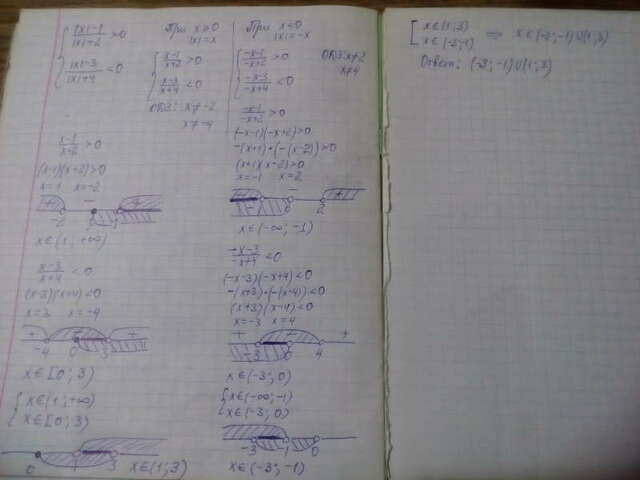 { (|x|-1)/(|x|+2) > 0
{ (|x|-3)/(|x|+4) < 0
При x ≥ 0
|x| = x
{ (x-1)/(x+2) > 0
{ (x-3)/(x+4) < 0
ОДЗ: x ≠ -2
x ≠ -4
(x-1)/(x+2) > 0
(x-1)(x+2) > 0
x = 1 x = -2
+ - +
-2 0 1
x ∈ (1; +∞)
(x-3)/(x+4) < 0
(x-3)(x+4) < 0
x = 3 x = -4
+ - +
-4 0 3
x ∈ [0; 3)
{ x ∈ (1; +∞)
{ x ∈ [0; 3)
0 1 3
x ∈ (1; 3)
При x < 0
|x| = -x
{ (-x-1)/(-x+2) > 0
{ (-x-3)/(-x+4) < 0
ОДЗ: x ≠ 2
x ≠ 4
(-x-1)/(-x+2) > 0
(-x-1)(-x+2) > 0
-(x+1)·(-(x-2)) > 0
(x+1)(x-2) > 0
x = -1 x = 2
+ - +
0 2
x ∈ (-∞; -1)
(-x-3)/(-x+4) < 0
(-x-3)(-x+4) < 0
-(x+3)·(-(x-4)) < 0
(x+3)(x-4) < 0
x = -3 x = 4
+ - +
-3 0 4
x ∈ (-3; 0)
{ x ∈ (-∞; -1)
{ x ∈ (-3; 0)
-3 -1 0
x ∈ (-3; -1)
[ x ∈ (1; 3)
[ x ∈ (-3; -1) ⇒ x ∈ (-3; -1) ∪ (1; 3)
Ответ: (-3; -1) ∪ (1; 3)